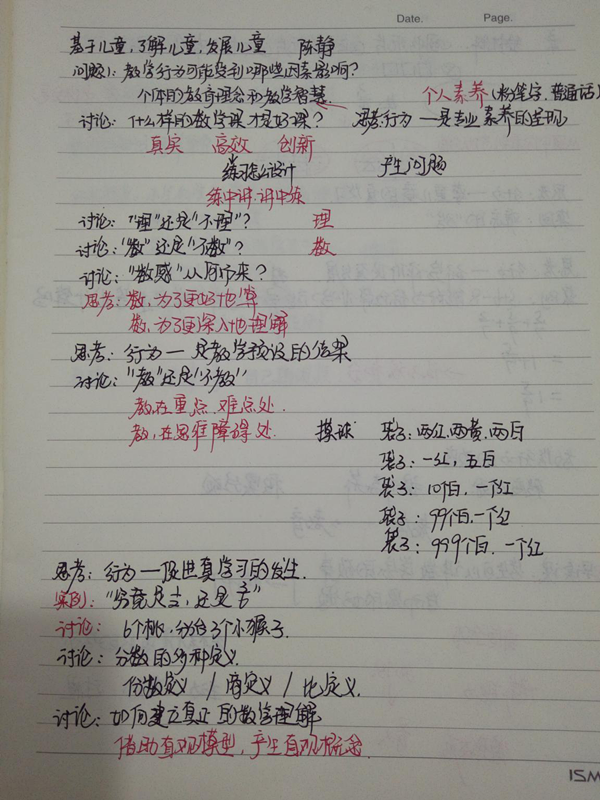 Date. Page.
基于儿童,了解儿童,发展儿童 陈静
问题1: 教学行为可能受到哪些因素影响?
个体的教育理念和教学智慧. 个人素养(粉笔字.普通话)
讨论: 什么样的数学课才是好课? 思考:行为一是专业素养的呈现
真实 高效 创新
练习设计 产生问题
练中讲.讲中练
讨论: "理"还是"不理"? 理
讨论: "数"还是"不数"? 数
讨论: "数感"从何而来?
思考: 数,为了更好地算
数,为了更深入地理解
思考: 行为一是教学预设的结果
讨论: "教"还是"不教"
教,在重点.难点处.
教,在思维障碍处. 摸球 袋子: 两红.两黄.两白
袋子: 一红, 五白
袋子: 10个白, 一个红
袋子: 99个白.一个红
袋子: 999个白. 一个红
思考: 行为一促进真学习的发生.
案例: "究竟是 , 还是 "
讨论: 6个桃, 分给3个小猴子.
讨论: 分数的多种定义.
份数定义 / 商定义 / 比定义.
讨论: 如何建立真正的数学理解
借助直观模型, 产生直观概念.